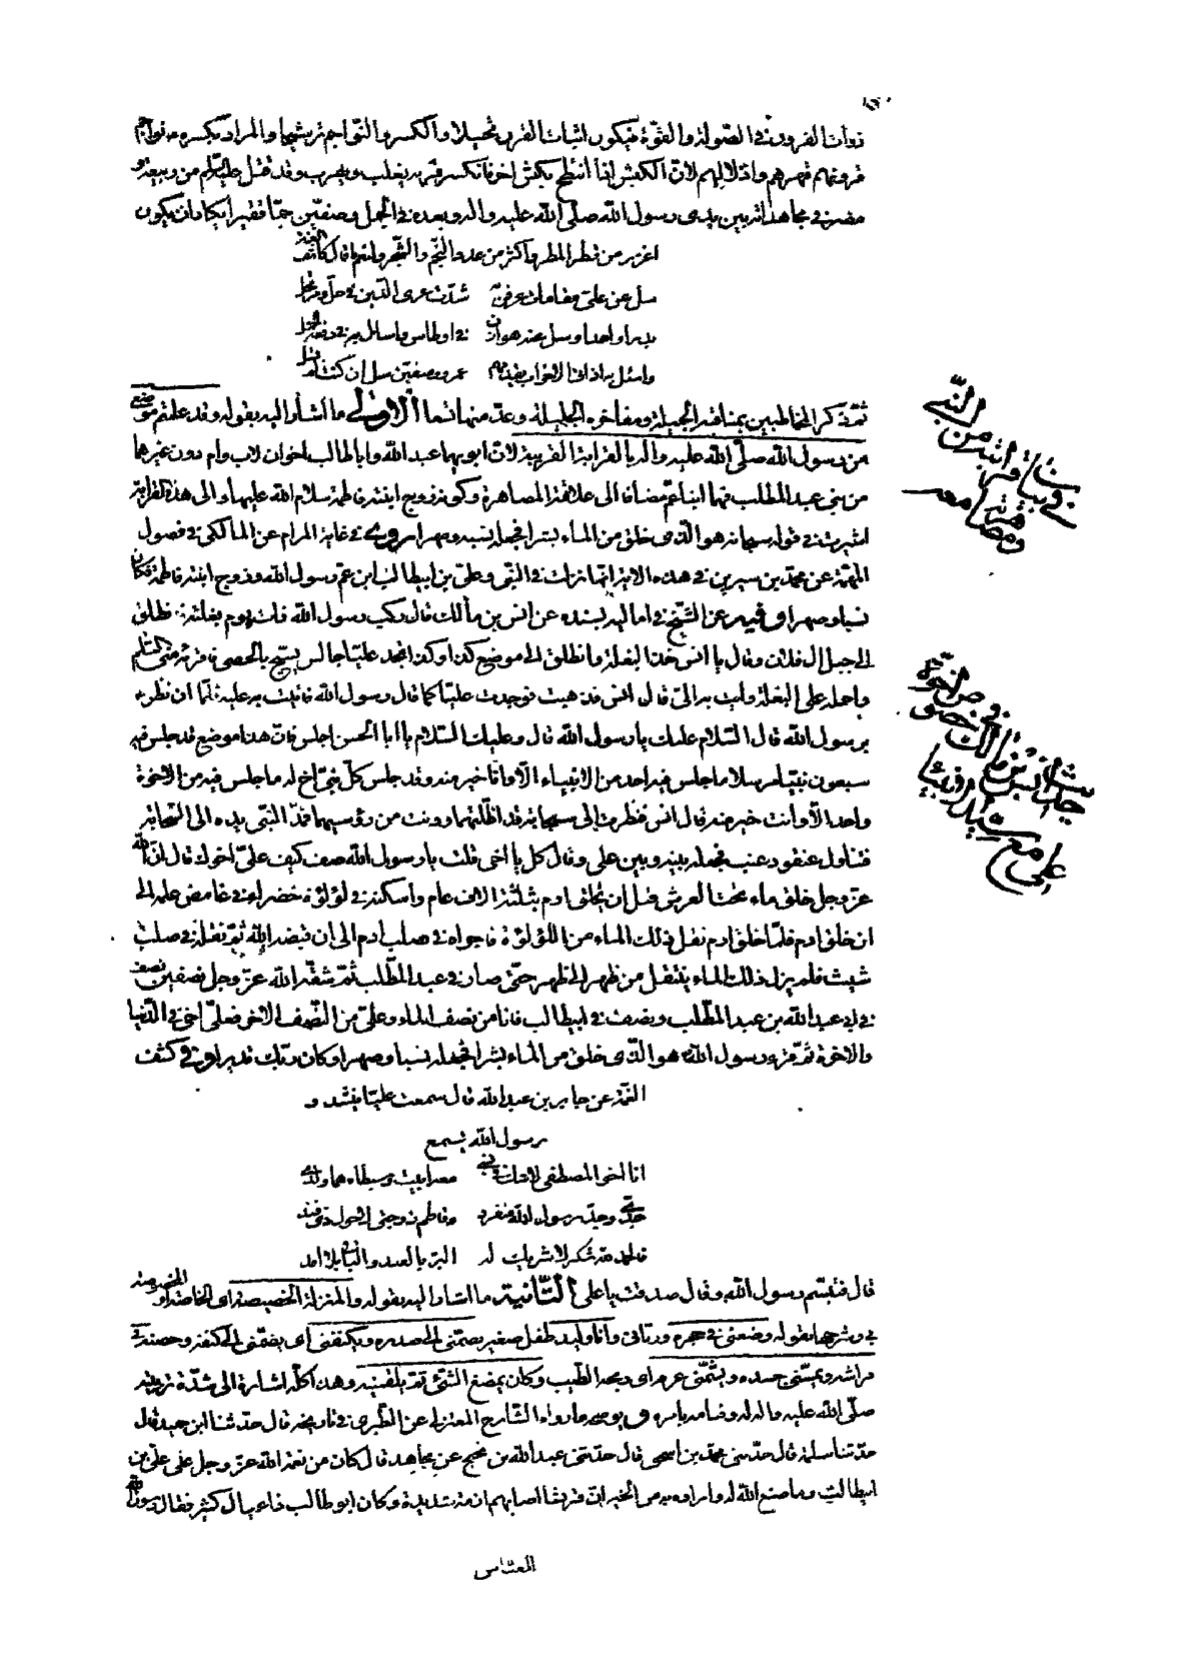 ذوات القرون في الصولة والقوة فيكون اثبات القرن تخييلا والكسر والنواجم ترشيحا والمراد بكسره نواجم
قرونهم قهرهم واذلالهم لان الكبش اذا انتطح بكبش اخر فانكسر قرنه يغلب ويهرب وقد قتل عليه السلم من ربيعة و
مضر في مجاهداته بين يدى رسول الله صلى الله عليه واله وبعده في الجمل وصفين جما فقيرا يكاد ان يكون
اغزر من قطر المطر واكثر من عدد النجم والشجر ولنعم ما قال كاشف
سل عن على مقامات عرفن شدت عرى الدين في حل ومرتحل
بدرا واحدا وسل عنه هوازن في اوطاس واسال به في وقعة الجمل
واسئل به اذ اتى الاحزاب يقدمهم عمرو وصفين سل ان كنت لم تسل
ثم ذكر المخاطبين بمناقبه الجميلة ومفاخره الجليلة وعد منها تسعا الاولى ما اشار اليه بقوله وقد علمتم موضعي
من رسول الله صلى الله عليه واله بالقرابة القريبة لان ابويهما عبد الله وابا طالب اخوان لاب وام دون غيرهما
من بنى عبد المطلب فهما ابنا عم مضافا الى علاقة المصاهرة وكونه زوج ابنته فاطمة سلام الله عليها والى هذه القرابة
اشير في قوله سبحانه هو الذى خلق من الماء بشرا فجعله نسبا وصهرا روى في غاية المرام عن المالكى في فصول
المهمة عن محمد بن سيرين في هذه الاية انها نزلت في النبى وعلى بن ابيطالب ابن عم رسول الله وزوج ابنته فاطمة فكان
نسبا وصهرا وفيه عن الشيخ في اماليه بسنده عن انس بن مالك قال ركب رسول الله ذات يوم بغلته فانطلق
الى جبل ال فلان وقال يا انس خذ البغلة وانطلق الى موضع كذا وكذا تجد عليا جالس يسبح بالحصى فاقرئه منى السلم
واحمله على البغلة وايت به الى قال انس فذهبت فوجدت عليا كما قال رسول الله فاتيت به عليه فلما ان نظر به
به رسول الله قال السلام عليك يا رسول الله قال وعليك السلام يا ابا الحسن اجلس فان هذا موضع قد جلس فيه
سبعون نبيا مرسلا ما جلس فيه احد من الانبياء الا وانا خير منه وقد جلس كل نبى اخ له ما جلس فيه من الاخوة
واحد الا وانت خير منه قال انس فنظرت الى سحابة قد اظلتهما ودنت من رؤسهما فمد النبى يده الى السحابة
فتناول عنقود عنب فجعله بينه وبين على وقال كل يا اخى قلت يا رسول الله صف كيف على اخوك قال ان الله
عز وجل خلق ماء تحت العرش قبل ان يخلق ادم بثلثة الاف عام واسكنه في لؤلؤة خضراء في غامض علمه الى
ان خلق ادم فلما خلق ادم نقل ذلك الماء من اللؤلؤة فاجراه في صلب ادم الى ان قبضه الله ثم نقله في صلب
شيث فلم يزل ذلك الماء ينتقل من ظهر الى ظهر حتى صار في عبد المطلب ثم شقه الله عز وجل نصفين نصف
في ابى عبد الله بن عبد المطلب ونصف في ابيطالب فانا من نصف الماء وعلى من النصف الاخر فعلى اخى في الدنيا
والاخرة ثم قرء رسول الله هو الذى خلق من الماء بشرا فجعله نسبا وصهرا وكان ربك قديرا وفي كشف
الغمة عن جابر بن عبد الله قال سمعت عليا ينشد و
رسول الله يسمع
انا اخو المصطفى لا شك في نسبى معه ربيت وسبطاه هما ولدى
جدى وجد رسول الله منفرد وفاطم زوجتى لا قول ذى فند
فالحمد لله شكرا لا شريك له البر بالعبد والباقى بلا امد
قال فتبسم رسول الله وقال صدقت يا على الثانية ما اشار اليه بقوله والمنزلة الخصيصة اى الخاصة او المخصوصة
بى وشرحها بقوله وضعنى في حجره وربانى وانا وليد طفل صغير يضمنى الى صدره ويكنفنى اى يضمنى الى كنفه وحضنه في
فراشه ويمسنى جسده ويشمنى عرفه اى ريحه الطيب وكان يمضغ الشئ ثم يلقمنيه وهذا كله اشارة الى شدة تربيته
صلى الله عليه واله له وقيامه بامره ويوضحه ما رواه الشارح المعتزلى عن الطبرى في تاريخه قال حدثنا ابن حميد قال
حدثنا سلمة قال حدثنى محمد بن اسحق قال حدثنى عبد الله بن نجيح عن مجاهد قال كان من نعمة الله عز وجل على على بن
ابيطالب وما صنع الله له واراده به من الخير ان قريشا اصابتهم ازمة شديدة وكان ابو طالب ذا عيال كثير فقال رسول الله
للعباس
في بيان قرابته من النبى
ومصاهرته معه
حديث انس بن مالك في خصوص اخوة
على مع رسول الله